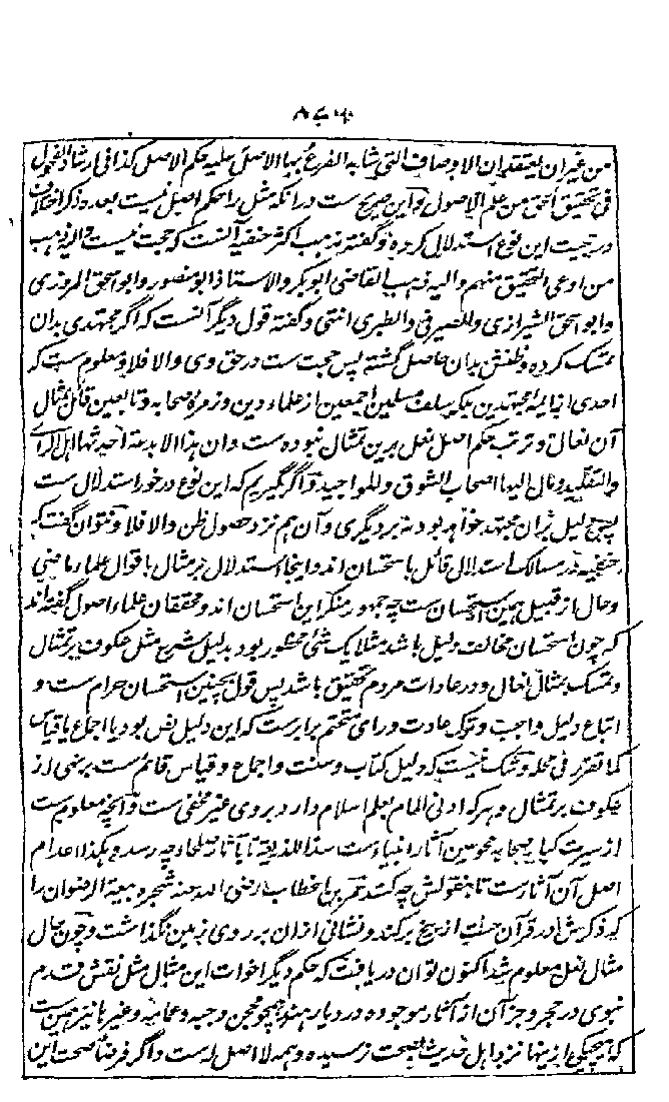 من غير ان يعتقد ان الاوصاف التي شابه الفرع بها الاصل عليه حكم الاصل كذا فى ارشاد الفحول
فى تحقيق الحق من علم الاصول واین صریح ست در انکه مثل را حکم اصل نیست بعده ذکر اختلاف
در حجیت این نوع استدلال کرده و گفته مذهب اکثر حنفیه آنست که حجت نیست واليه ذهب
من ادعى التحقيق منهم واليه ذهب القاضى ابو بكر والاستاذ ابو منصور وابو اسحق المروزى
وابو اسحق الشيرازى والصيرفى والطبرى انتهى وگفته قول دیگر آنست که اگر مجتهدی بدان
تمسک کرده وظنش بدان حاصل گشته پس حجت ست در حق وی والا فلا ومعلوم ست که
احدی از ایمه مجتهدین بلکه سلف مسلمین اجمعین از علماء دین و زمره صحابه و تابعین قائل بمثال
آن نعال و ترتب حکم اصل نعل برین تمثال نبوده ست وان هذا الا بدعة احدثها اهل الرأى
والتقليد ومال اليها اصحاب الشوق والمواجيد و اگر گیریم که این نوع در خور استدلال ست
پس دلیل بران مجتهد خواهد بود نه بر دیگری وآن هم نزد حصول ظن والا فلا و نتوان گفت که
حنفیه در مسالک استدلال قائل باستحسان اند و اینجا استدلال بر مثال باقوال علماء ماضی
وحال از قبیل همین استحسان ست چه جمهور منکر این استحسان اند و محققان علماء اصول گفته اند
که چون استحسان مخالف دلیل باشد مثلا یک شئ محظور بود بدلیل شرع مثل عکوف بر تمثال
و تمسک بمثال نعال و در عادات مردم تحقیق باشد پس قول بچنین استحسان حرام ست و
اتباع دلیل واجب و ترک عادت ورای متحتم برابرست که این دلیل نص بود یا اجماع یا قیاس
كما تقرر فى محله و شک نیست که دلیل کتاب و سنت و اجماع و قیاس قائم ست بر نهی از
عکوف بر تمثال و هرکه ادنی المام بعلم اسلام دارد بر وی غیر مخفی ست و آنچه معلوم ست
از سیرت کبار صحابه محو عین آثار انبیاءست سدا للذريعة تا بآثار صلحاء چه رسد و هكذا اعدام
اصل آن آثارست تا بنقولش چه کند عمر بن الخطاب رضی الله عنه شجره بیعة الرضوان را
که ذکرش در قرآن ست از بیخ برکند و نشانی ازان بر روی زمین نگذاشت و چون حال
مثال نعل معلوم شد اکنون توان دریافت که حکم دیگر اخوات این مثال مثل نقش قدم
نبوی در حجر و جز آن از آثار موجوده در دیار هند همچو محجن و جبه و عمامه و غیرها نیز همین ست
که هیچکی ازینها نزد اهل حدیث بصحت نرسیده و همه لا اصل له است و اگر فرضا صحت این